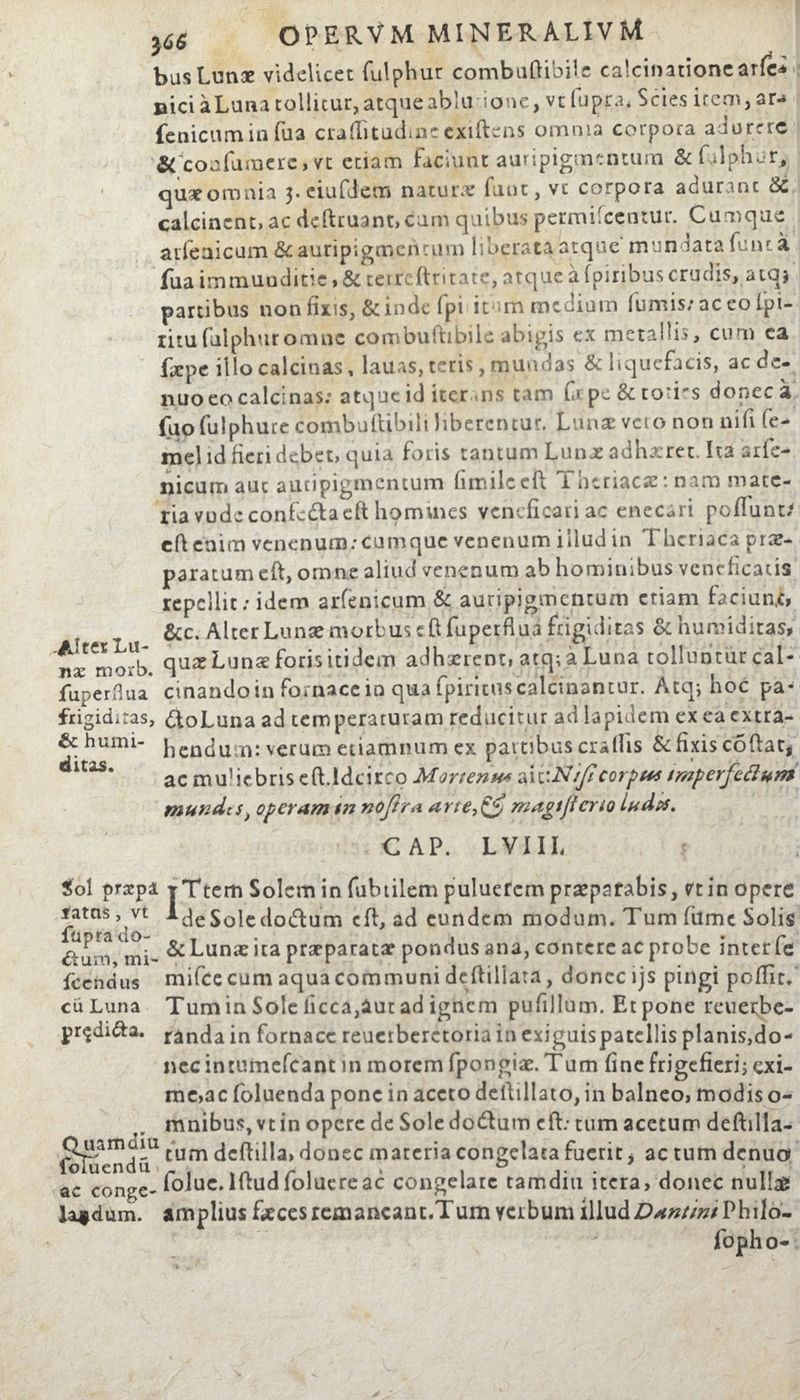 366 OPERVM MINERALIVM
bus Lunæ videlicet ſulphur combuſtibile calcinatione arſe-
nici à Luna tollitur, atque ablutione, vt ſupra. Scies item, ar-
ſenicum in ſua craſſitudine exiſtens omnia corpora adurere
& conſumere, vt etiam faciunt auripigmentum & ſulphur,
quæ omnia 3. eiuſdem naturæ ſunt, vt corpora adurant &
calcinent, ac deſtruant, cum quibus permiſceentur. Cumque
arſenicum & auripigmentum liberata atque mundata ſunt à
ſua immunditie, & terreſtritate, atque à ſpiritbus crudis, atq;
partibus non fixis, & inde ſpiritum medium fumis: ac eo ſpi-
ritu ſulphur omne combuſtibile abigis ex metallis, cum ea
ſæpe illo calcinas, lauas, teris, mundas & liquefacis, ac de-
nuo eo calcinas: atque id iterans tam ſæpe & toties donec à
ſuo ſulphure combuſtibili liberentur. Lunæ vero non niſi ſe-
mel id fieri debet, quia foris tantum Lunæ adhæret. Ita arſe-
nicum aut auripigmentum ſimile eſt Theriacæ: nam mate-
ria vnde confecta eſt homines veneficari ac enecari poſſunt:
eſt enim venenum: cumque venenum illud in Theriaca præ-
paratum eſt, omne aliud venenum ab hominibus veneficatis
repellit: idem arſenicum & auripigmentum etiam faciunt,
&c. Alter Lunæ morbus eſt ſuperflua frigiditas & humiditas,
quæ Lunæ foris itidem adhærent, atq; a Luna tolluntur cal-
cinando in fornace in qua ſpiritus calcinantur. Atq; hoc pa-
cto Luna ad temperaturam reducitur ad lapidem ex ea extra-
hendum: verum etiamnum ex partibus craſſis & fixis cõſtat,
ac muliebris eſt. Idcirco Morienus ait: Niſi corpus imperfectum
mundes, operam in noſtra arte, & magiſterio ludis.
Alter Lu-
næ morb.
ſuperflua
frigiditas,
& humi-
ditas.
CAP. LVIII.
ITtem Solem in ſubtilem puluerem præparabis, vt in opere
de Sole doctum eſt, ad eundem modum. Tum ſume Solis
& Lunæ ita præparatæ pondus ana, contere ac probe inter ſe
miſce cum aqua communi deſtillata, donec ijs pingi poſſit.
Tum in Sole ſicca, aut ad ignem puſillum. Et pone reuerbe-
randa in fornace reuerberetoria in exiguis patellis planis, do-
nec intumeſcant in morem ſpongiæ. Tum ſine frigefieri; exi-
me, ac ſoluenda pone in aceto deſtillato, in balneo, modis o-
mnibus, vt in opere de Sole doctum eſt: tum acetum deſtilla-
tum deſtilla, donec materia congelata fuerit, ac tum denuo
ſolue. Iſtud ſoluere ac congelare tamdiu itera, donec nullæ
amplius fæces remaneant. Tum verbum illud Dantini Philo-
ſopho-
Sol præpa
ratus, vt
ſupra do-
ctum, mi-
ſcendus
cũ Luna
prędicta.
Quamdiu
ſoluendũ
ac conge-
landum.